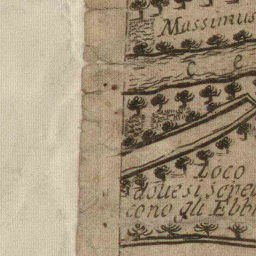 Massimus
C e
Loco
doue si Sepel
cono gli Ebbr